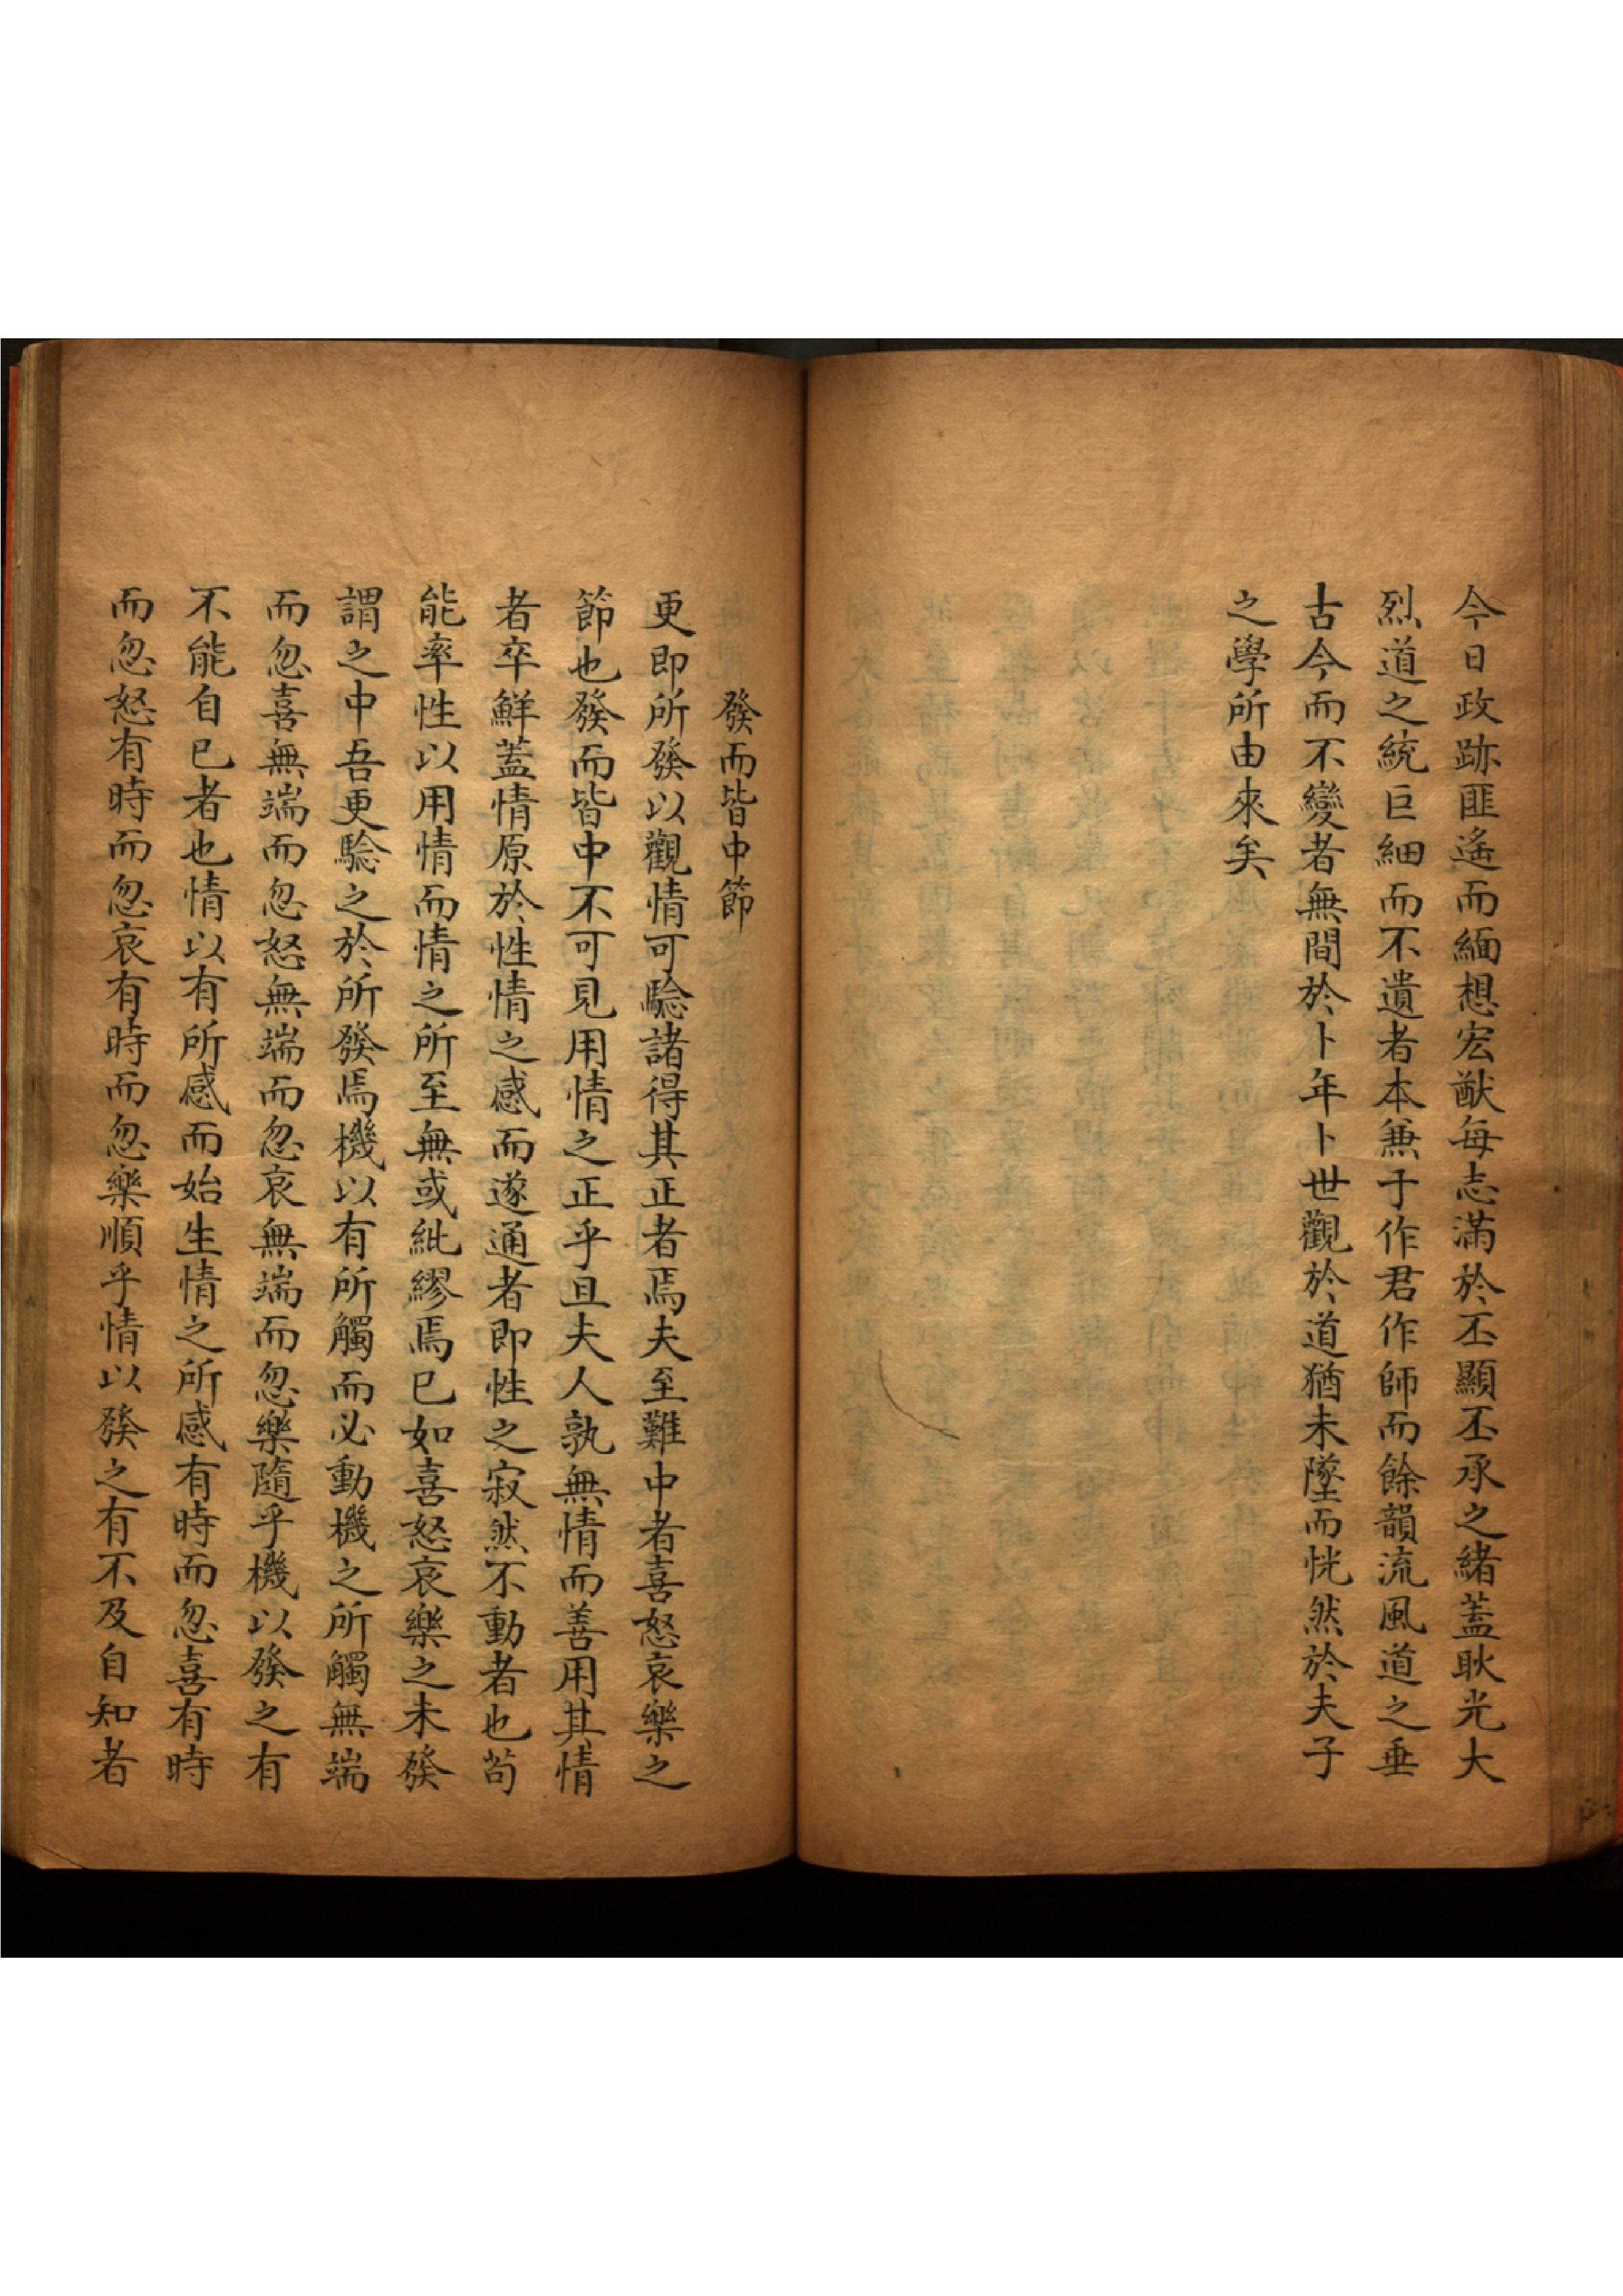 今日政跡匪遙而緬想宏猷每志滿於丕顯丕承之緒蓋耿光大
烈道之統巨細而不遺者本兼于作君作師而餘韻流風道之垂
古今而不變者無間於卜年卜世觀於道猶未墜而恍然於夫子
之學所由來矣
發而皆中節
更即所發以觀情可驗諸得其正者焉夫至難中者喜怒哀樂之
節也發而皆中不可見用情之正乎且夫人孰無情而善用其情
者卒鮮蓋情原於性情之感而遂通者即性之寂然不動者也苟
能率性以用情而情之所至無或紕繆焉已如喜怒哀樂之未發
謂之中吾更驗之於所發焉機以有所觸而必動機之所觸無端
而忽喜無端而忽怒無端而忽哀無端而忽樂隨乎機以發之有
不能自已者也情以有所感而始生情之所感有時而忽喜有時
而忽怒有時而忽哀有時而忽樂順乎情以發之有不及自知者